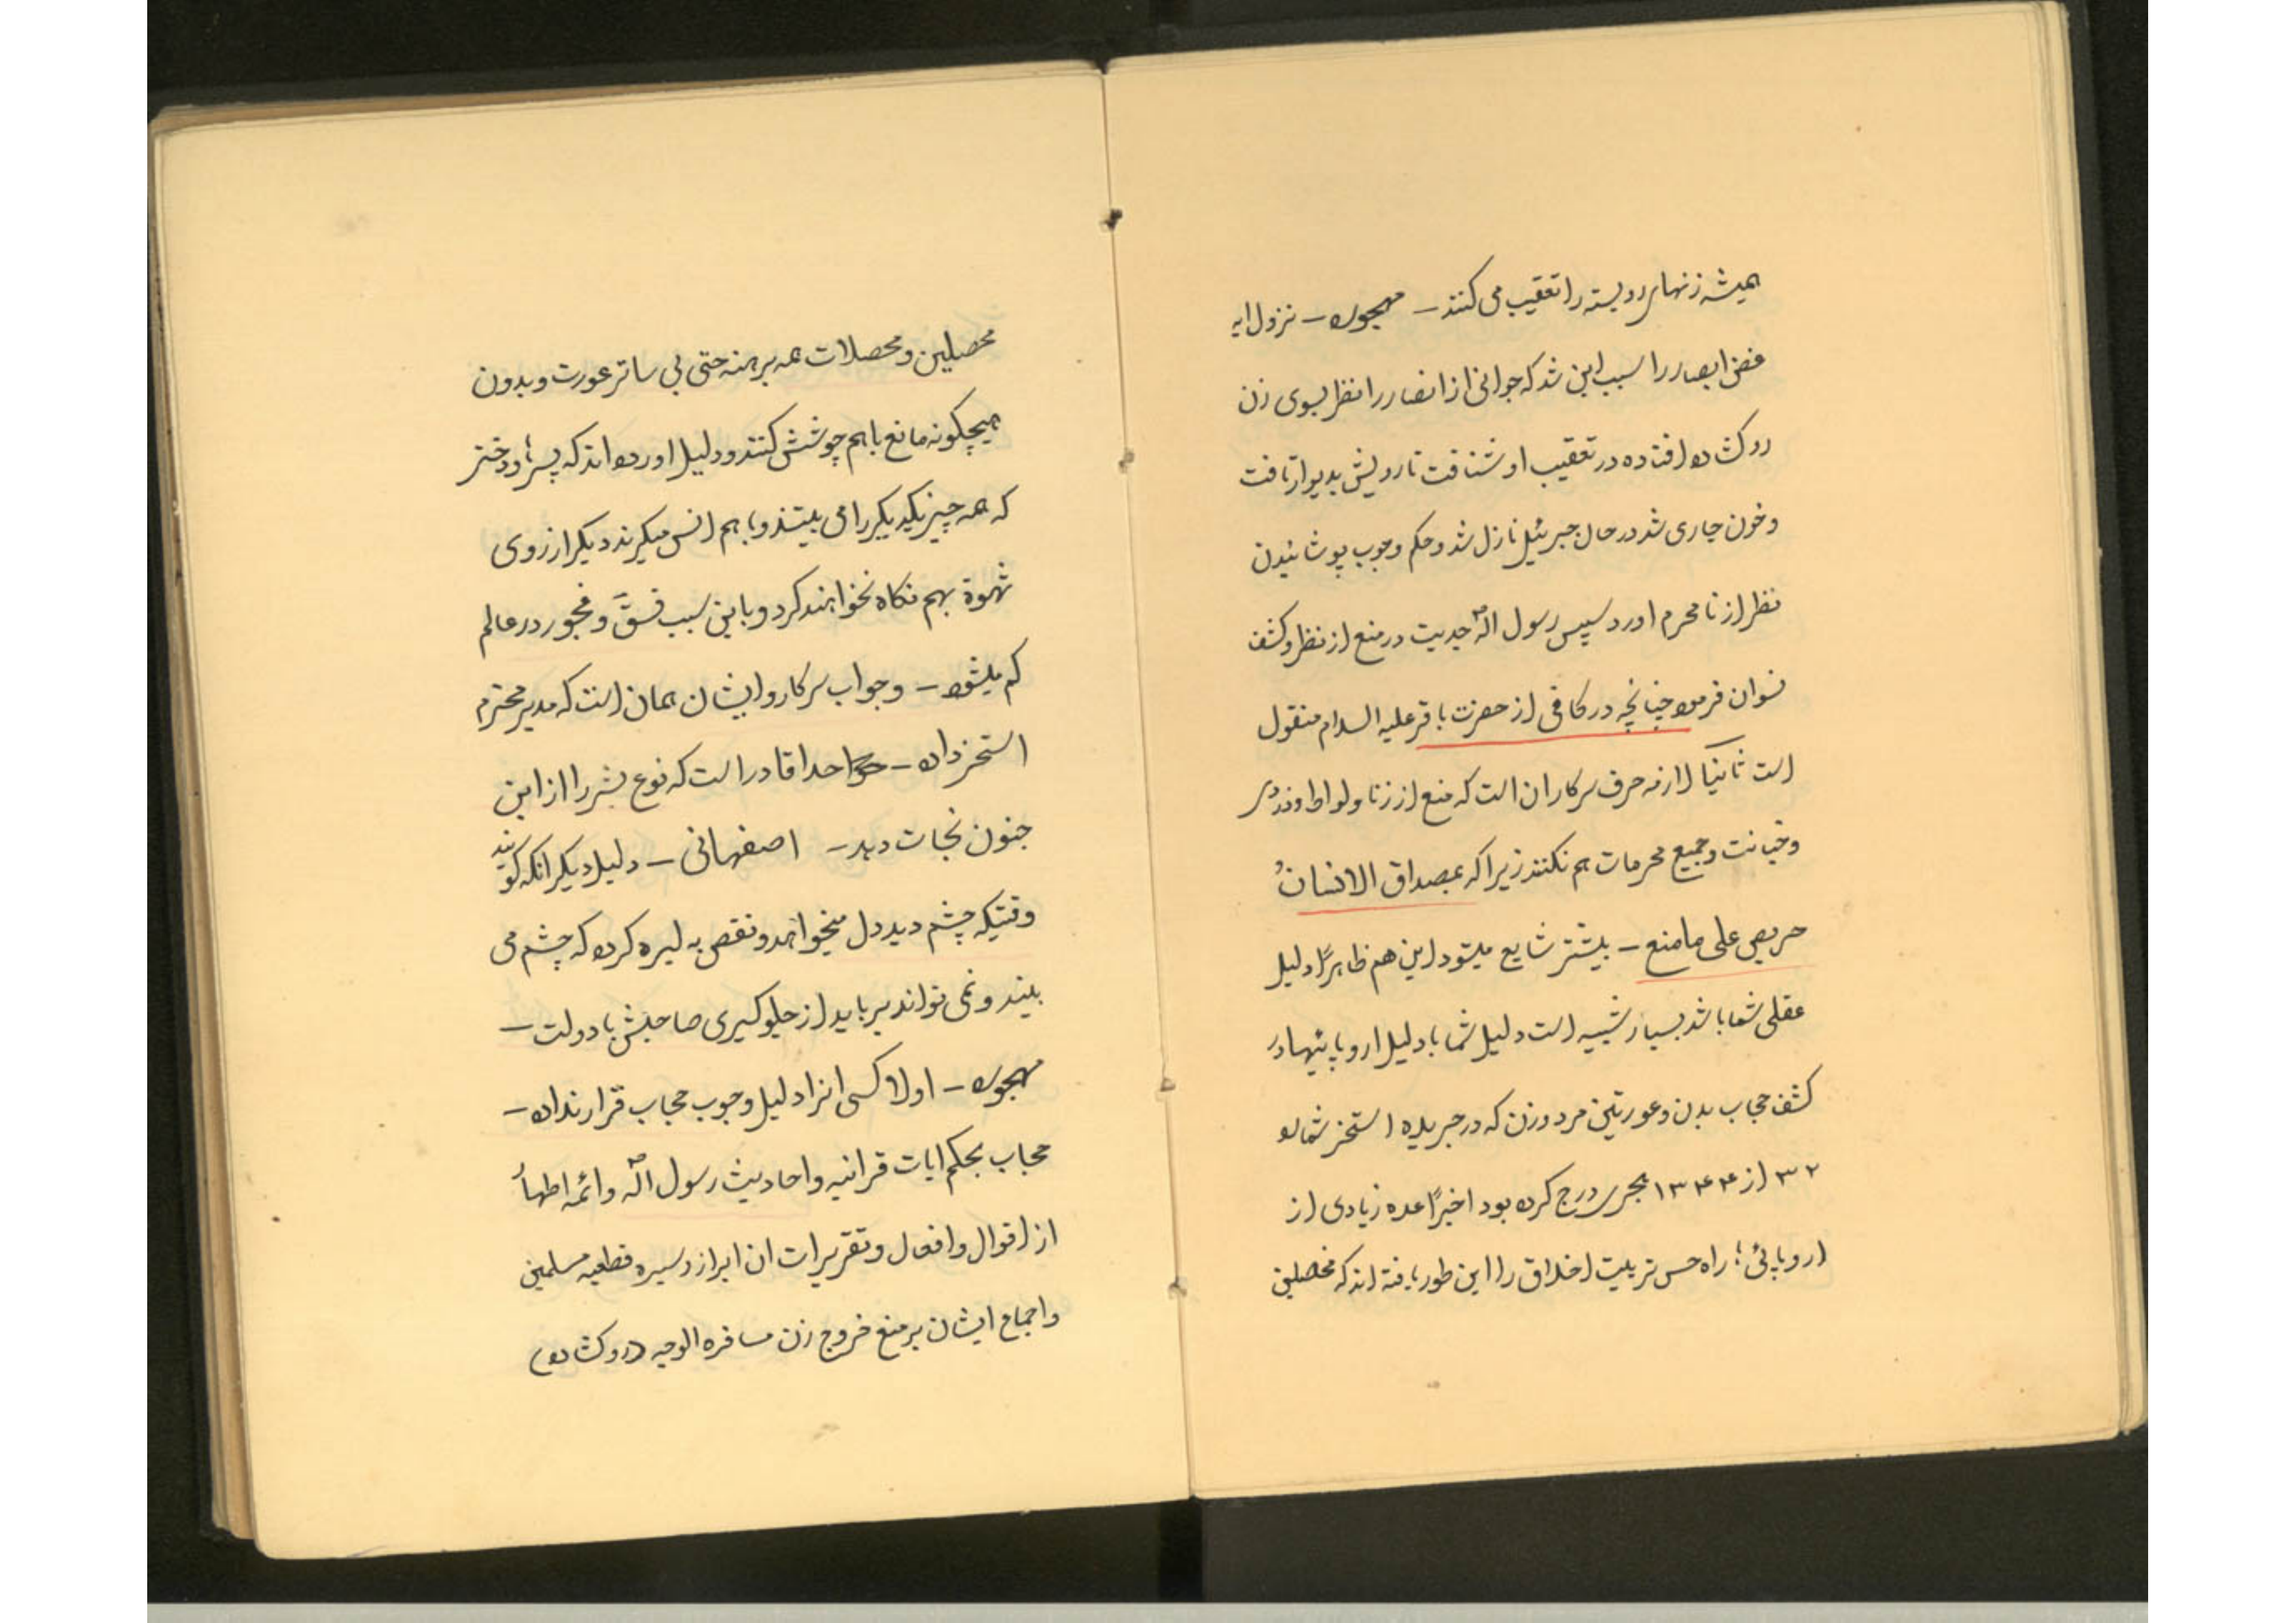 همیشه زنهای روبسته را تعقیب می کنند – مهجوره – نزول ایه
غض ابصار را سبب این شد که جوانی از انصار را نظر بسوی زن
روگشاده افتاده در تعقیب او شتافت تا رویش بدیوار تافت
و خون جاری شد در حال جبرئیل نازل شد و حکم وجوب پوشانیدن
نظر از نامحرم اورد سپس رسول الله ص حدیث در منع از نظر و کشف
نسوان فرموده چنانچه در کافی از حضرت باقر علیه السلام منقول
است ثانیا لازمه حرف سرکاران است که منع از زنا و لواط و دزدی
و خیانت و جمیع محرمات هم نکنند زیرا که بمصداق الانسانُ
حریص علی ما منع – بیشتر شایع میشود این هم ظاهرًا دلیل
عقلی شما باشد بسیار شبیه است دلیل شما با دلیل اروپائیها در
کشف حجاب بدن و عورتین مرد و زن که در جریده استخر شماره
۳۲ از ۱۳۴۴ هجری درج کرده بود اخیرًا عده زیادی از
اروپائی؛ راه حس تربیت اخلاق را این طور یافته اند که محصلین
محصلین و محصلات همه برهنه حتی بی ساتر عورت و بدون
هیچکونه مانع باهم جوشش کنند و دلیل اورده اند که پسر؛ و دختر
که همه چیز یکدیکر را می بینند و باهم انس میکیرند دیکر از روی
شهوة بهم نکاه نخواهند کرد و باین سبب فسق و فجور در عالم
کم میشود – و جواب سرکار و ایشان همان است که مدیر محترم
استخر داده – خدا قادر است که نوع بشر را از این
جنون نجات دهد – اصفهانی – دلیل دیکر انکه کویند
وقتیکه چشم دید دل میخواهد و نقص به لیره کرده که چشم می
بیند و نمی تواند برباید از جلوکیری صاحبش با دولت –
مهجوره – اولا کسی انرا دلیل وجوب حجاب قرار نداده –
حجاب بحکم ایات قرانیه و احادیث رسول الله ص و ائمه اطهار
از اقوال و افعال و تقریرات ان ابراز و سیره قطعیه مسلمین
و اجماع ایشان بر منع خروج زن سافره الوجه (روگشاده)